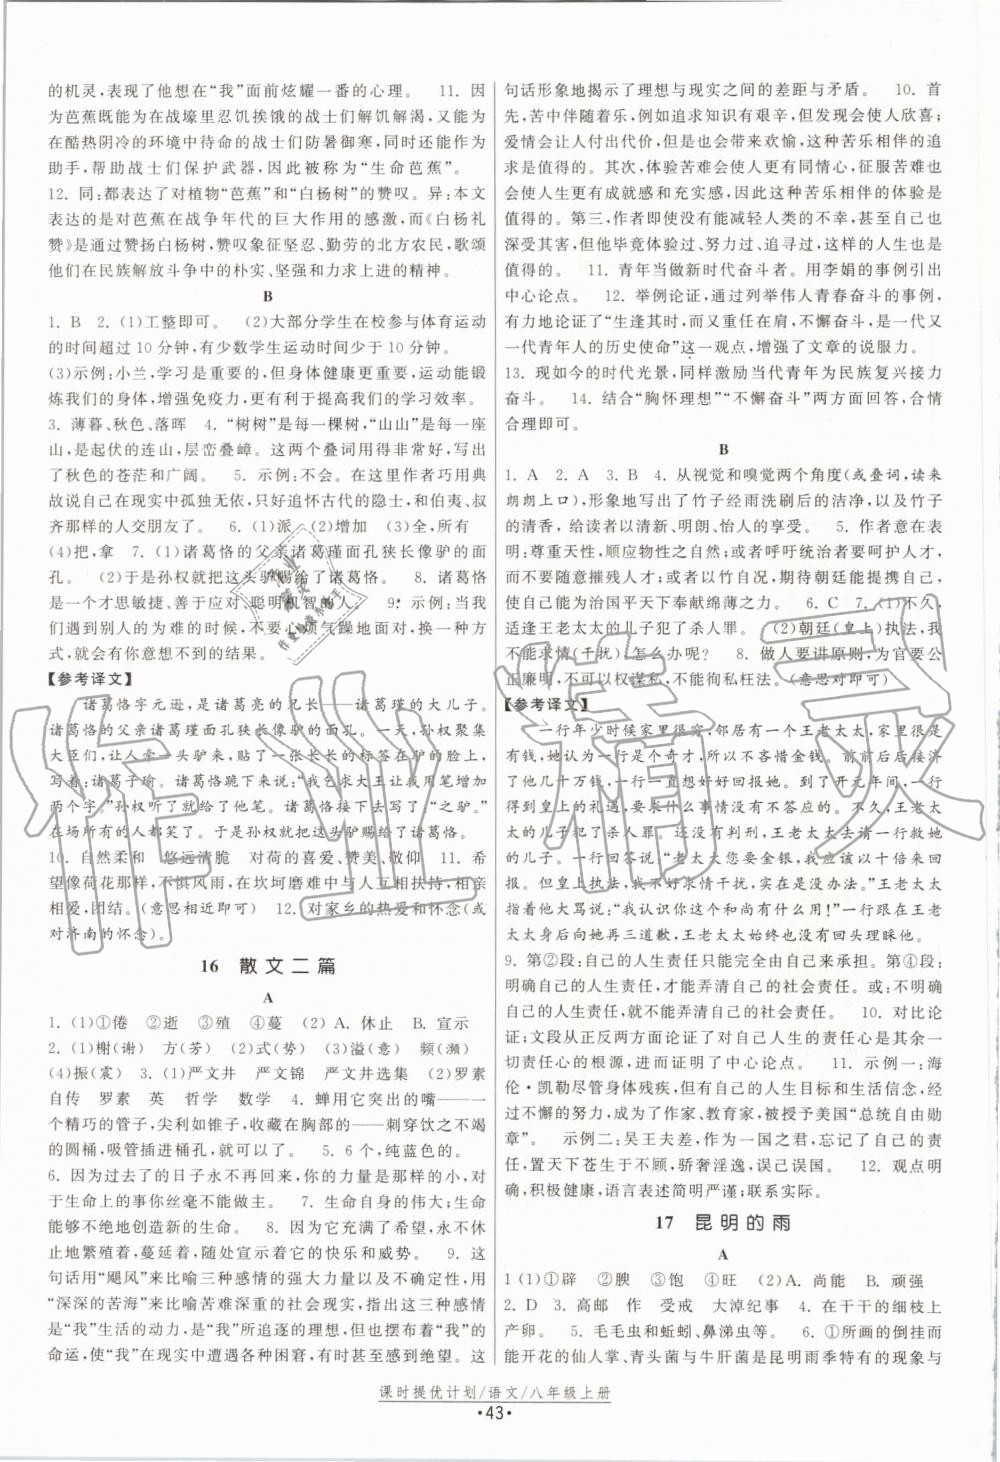 的机灵,表现了他想在“我”面前炫耀一番的心理。　11. 因
为芭蕉既能为在战壕里忍饥挨饿的战士们解饥解渴,又能为
在酷热阴冷的环境中待命的战士们防暑御寒,同时还能作为
助手,帮助战士们保护武器,因此被称为“生命芭蕉”。
12. 同:都表达了对植物“芭蕉”和“白杨树”的赞叹。异:本文
表达的是对芭蕉在战争年代的巨大作用的感激,而《白杨礼
赞》是通过赞扬白杨树,赞叹象征坚忍、勤劳的北方农民,歌颂
他们在民族解放斗争中的朴实、坚强和力求上进的精神。
B
1. B　2. (1)工整即可。　(2)大部分学生在校参与体育运动
的时间超过 10 分钟,有少数学生运动时间不足 10 分钟。
(3)示例:小兰,学习是重要的,但是身体健康更重要,运动能锻
炼我们的身体,增强免疫力,更有利于提高我们的学习效率。
3. 薄暮、秋色、落晖　4. “树树”是每一棵树,“山山”是每一座
山,是起伏的连山,层峦叠嶂。这两个叠词用得非常好,概括
了秋色的苍茫和广阔。　5. 示例:不会。在这里作者巧用典
故说自己在现实中孤独无依,只好追怀古代的隐士,和伯夷、叔
齐那样的人交朋友了。　6. (1)派　(2)增加　(3)全,所有
(4)把,拿　7. (1)诸葛恪的父亲诸葛瑾面孔狭长像驴的面
孔。　(2)于是孙权就把这头驴赐给了诸葛恪。　8. 诸葛恪
是一个才思敏捷、善于应对、聪明机智的人。　9. 示例:当我
们遇到别人的为难的时候,不要心烦气躁地面对,换一种方
式,就会有你意想不到的结果。
【参考译文】
诸葛恪字元逊,是诸葛亮的兄长——诸葛瑾的大儿子。
诸葛恪的父亲诸葛瑾面孔狭长像驴的面孔。一天,孙权聚集
大臣们,让人牵一头驴来,贴了一张长长的标签在驴的脸上,
写着:诸葛子瑜。诸葛恪跪下来说:“我乞求大王让我用笔增加
两个字。”孙权听了就给了他笔。诸葛恪接下去写了:“之驴。”
在场所有的人都笑了。于是孙权就把这头驴赐给了诸葛恪。
10. 自然柔和　悠远清脆　对荷的喜爱、赞美、敬仰　11. 希
望像荷花那样,不惧风雨,在坎坷磨难中与人互相扶持,相亲
相爱,团结。(意思相近即可)　12. 对家乡的热爱和怀念(或
对济南的怀念)。
16　散文二篇
A
1. (1)①倦　②逝　③殖　④蔓　(2) A. 休止　B. 宣示
2. (1)榭(谢)　方(芳)　(2)式(势)　(3)溢(意)　频(濒)
(4)振(震)　3. (1)严文井　严文锦　严文井选集　(2)罗素
自传　罗素　英　哲学　数学　4. 蝉用它突出的嘴——一
个精巧的管子,尖利如锥子,收藏在胸部的——刺穿饮之不竭
的圆桶,吸管插进桶孔,就可以饮个饱了。　5. 6 个,纯蓝色的。
6. 因为过去了的日子永不再回来,你的力量是那样的小,
对于生命上的事你丝毫不能做主。　7. 生命自身的伟大;生命
能够不绝地创造新的生命。　8. 因为它充满了希望,永不休
止地繁殖着,蔓延着,随处宣示着它的快乐和威势。　9. 这
句话用“飓风”来比喻三种感情的强烈和不可抗拒的力量,用
“深深的苦海”来比喻苦难深重的社会现实,指出这三种感情
是“我”生活的动力,是“我”所追逐的理想,但也摆布着“我”的
命运,使“我”在现实中遭遇各种困窘,有时甚至感到绝望。这
句话形象地揭示了理想与现实之间的差距与矛盾。　10. 首
先,苦中伴随着乐,例如追求知识有艰辛,但发现也会使人欣喜;
爱情会让人付出代价,但也会带来欢愉,这种苦乐相伴的追求
是值得的。其次,体验苦难会使人更有同情心,征服苦难也
会使人生更有成就感和充实感,因此这种苦乐相伴的体验是
值得的。第三,作者即使没有能减轻人类的不幸,甚至自己也
深受其害,但他毕竟体验过、努力过、追寻过,这样的人生也是
值得的。　11. 青年当做新时代奋斗者。用李娟的事例引出
中心论点。　12. 举例论证,通过列举伟人青春奋斗的事例,
有力地论证了“生逢其时,而又重任在肩,不懈奋斗,是一代又
一代青年人的历史使命”这一观点,增强了文章的说服力。
13. 现如今的时代光景,同样激励当代青年为民族复兴接力
奋斗。　14. 结合“胸怀理想”“不懈奋斗”两方面回答,合情
合理即可。
B
1. A　2. A　3. B　4. 从视觉和嗅觉两个角度(或叠词,读来
朗朗上口),形象地写出了竹子经雨洗刷后的洁净,以及竹子
的清香,给读者以清新、明朗、怡人的享受。　5. 作者意在表
明:尊重天性,顺应物性之自然;或者呼吁统治者要呵护人才,
而不要随意摧残人才;或者期待朝廷能够重用自己,
使自己能为治国平天下奉献绵薄之力。　6. C　7. (1)不久,
适逢王老太太的儿子犯了杀人罪。　(2)朝廷(皇上)执法,我
不能求情(干扰),怎么办呢?　8. 做人要讲原则,为官要公
正廉明,不可以权谋私,不能徇私枉法。(意思对即可)
【参考译文】
一行年少时候家里很穷,邻居有一个王老太太,家里很富
有,她认为一行是个奇才,所以不吝惜金钱。前前后后接济
了他几十万钱,一行经常想好好回报她。到了开元年间,一行
得到皇上的礼遇,要求什么事情没有不答应的。不久,王老太
太的儿子犯了杀人罪。还没有判刑,王老太太请一行救她
的儿子。一行回答说:“老太太要金银,我应该以十倍来回
报。但皇上执法,我不好求情干扰,实在是没办法。”王老太太
指着一行大骂说:“我认识你这个和尚有什么用!”尽管王老
太太不停责骂,一行再三道歉,但王老太太也没有回头理睬他。
9. 第②段:自己的人生责任只能完全由自己来承担。第④段:
能弄清自己的人生责任,就能弄清自己的社会责任。或:不明确
自己的人生责任,就不能弄清自己的社会责任。　10. 对比论
证;文段从正反两方面论证了对自己人生的责任心是其余一
切责任心的根源,进而证明了中心论点。　11. 示例一:海
伦·凯勒尽管身体残疾,但有自己的人生目标和生活信念,经
过努力,成为了作家、教育家,被授予美国“总统自由勋
章”。　示例二:吴王夫差,作为一国之君,忘记了自己的责
任,置天下苍生于不顾,骄奢淫逸,误己误国。　12. 观点明
确,积极健康,语言表述简明严谨;联系实际。
17　昆明的雨
A
1 (1)①辟　②腴　③饱　④旺　(2)A. 尚能　B. 顽强
2. D　3. 高邮　作　受戒　大淖纪事　4. 在干干的细枝上
产卵。　5. 毛毛虫和蚯蚓、鼻涕虫等。　6. ①所画的倒挂而
能开花的仙人掌、青头菌与牛肝菌是昆明雨季特有的现象与
课时提优计划/语文/八年级上册
·43·